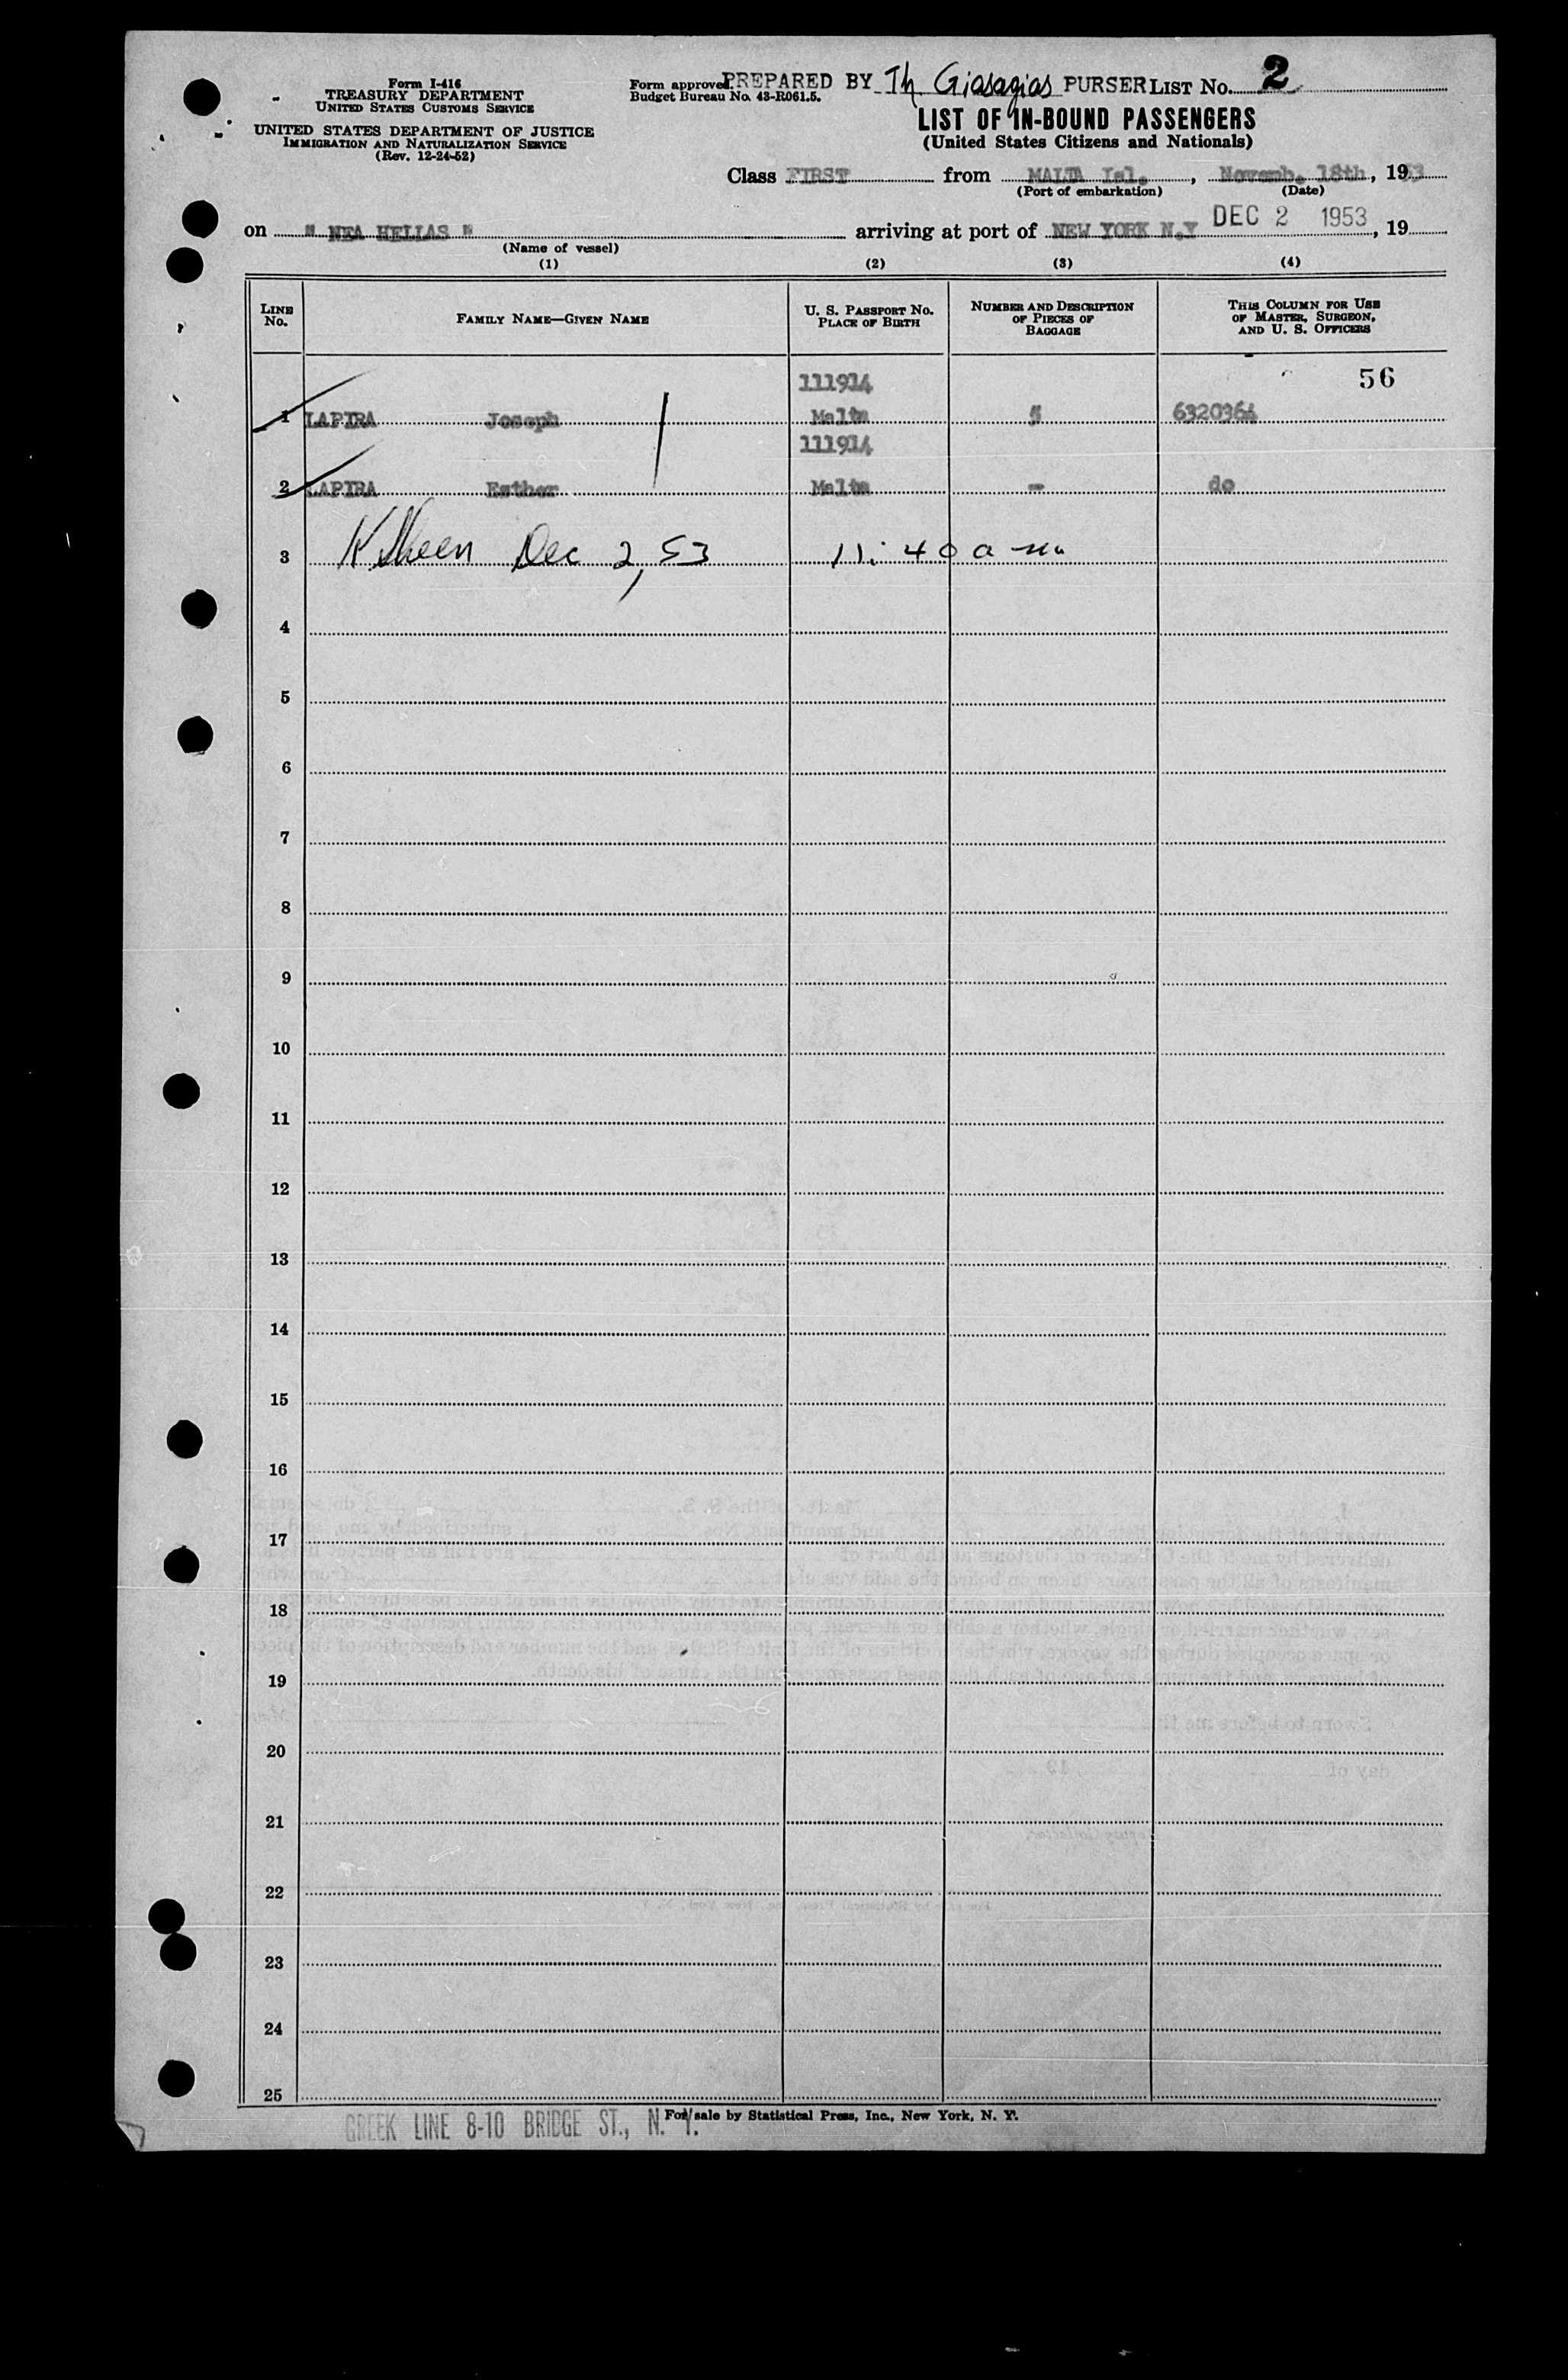 Form I-416
TREASURY DEPARTMENT
UNITED STATES CUSTOMS SERVICE
UNITED STATES DEPARTMENT OF JUSTICE
IMMIGRATION AND NATURALIZATION SERVICE
(Rev. 12-24-52)
Form approved.
Budget Bureau No. 43-R061.5.
PREPARED BY Th Giasagias PURSER LIST No. 2
LIST OF IN-BOUND PASSENGERS
(United States Citizens and Nationals)
Class FIRST from MALTA Isl., Novemb. 18th, 1953
(Port of embarkation) (Date)
on " NEA HELLAS " arriving at port of NEW YORK N.Y DEC 2 1953, 19
(Name of vessel)
(1) (2) (3) (4)
LINE No. FAMILY NAME—GIVEN NAME U. S. PASSPORT No. PLACE OF BIRTH NUMBER AND DESCRIPTION OF PIECES OF BAGGAGE THIS COLUMN FOR USE OF MASTER, SURGEON, AND U. S. OFFICERS
111914 56
1 LAPIRA Joseph Malta 5 6320364
111914
2 LAPIRA Esther Malta - do
3 Dec 2, 53 11:40 a m
4
5
6
7
8
9
10
11
12
13
14
15
16
17
18
19
20
21
22
23
24
25
For sale by Statistical Press, Inc., New York, N. Y.
GREEK LINE 8-10 BRIDGE ST., N. Y.